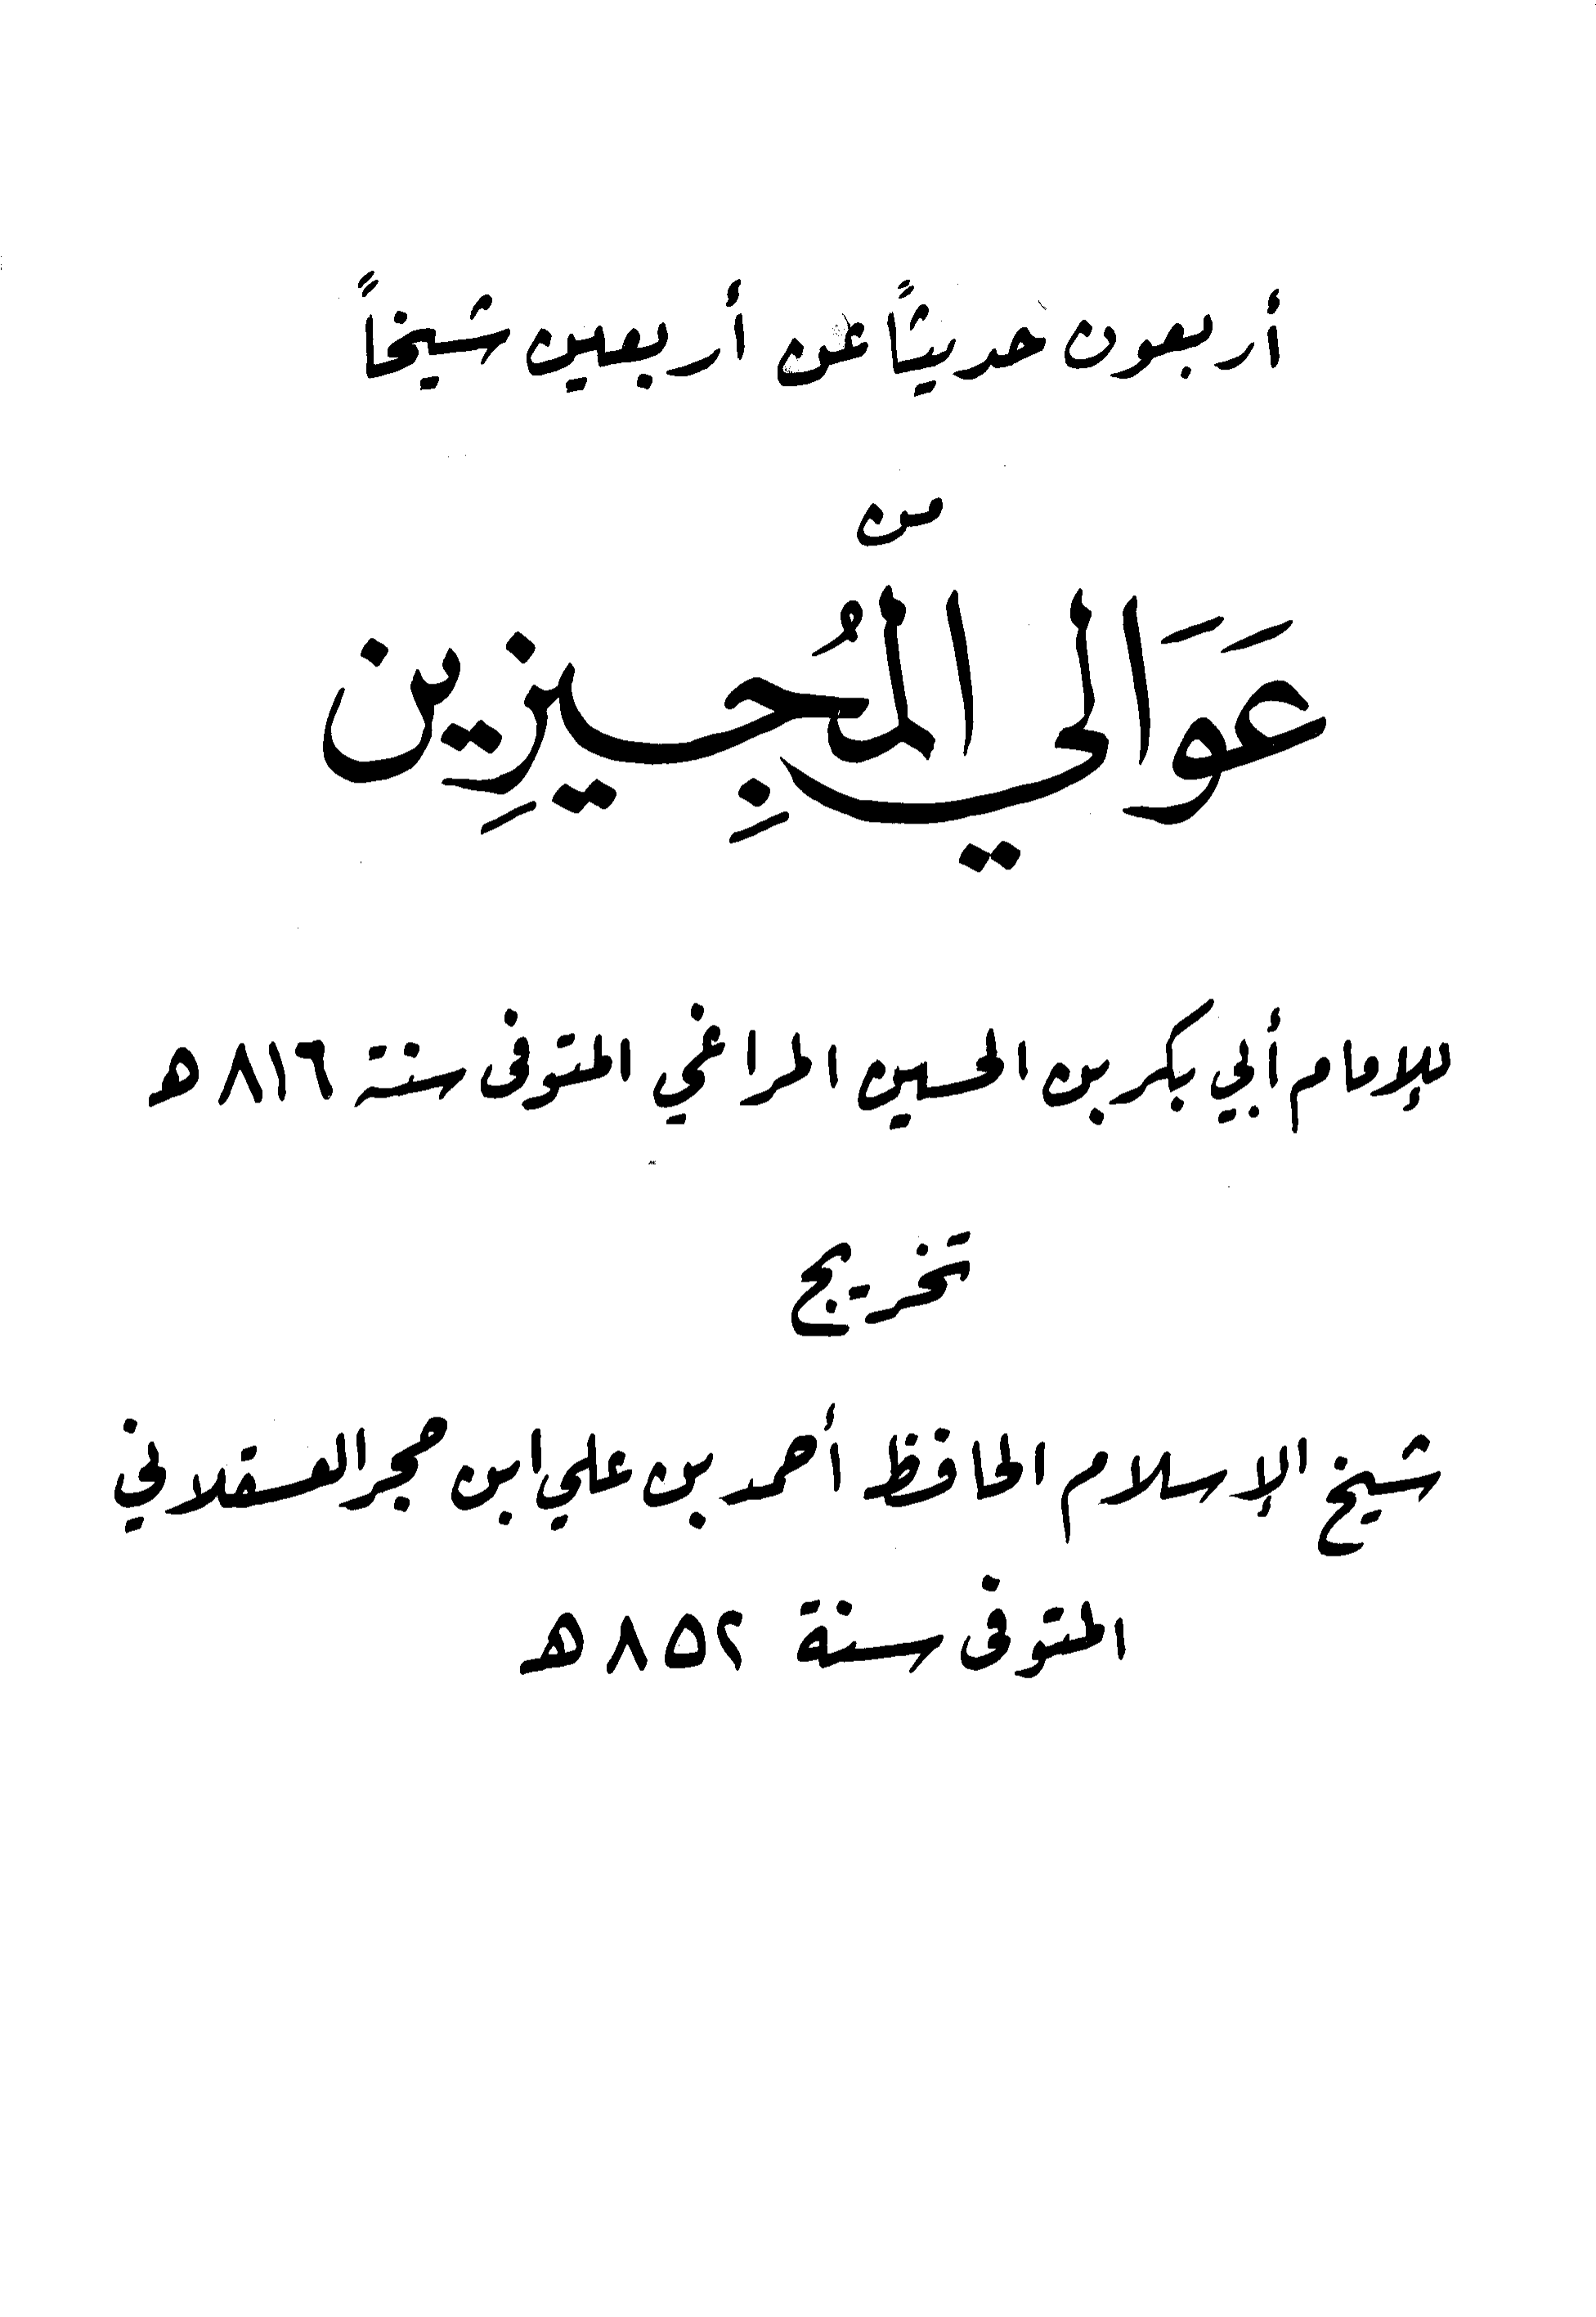 أربعون حديثاً عن أربعين شيخاً
من
عَوَالي المُجِيزِين
للإمام أبي بكر بن الحسين المراغي المتوفى سنة ٨١٦ هـ
تخريج
شيخ الإسلام الحافظ أحمد بن علي ابن حجر العسقلاني
المتوفى سنة ٨٥٢ هـ